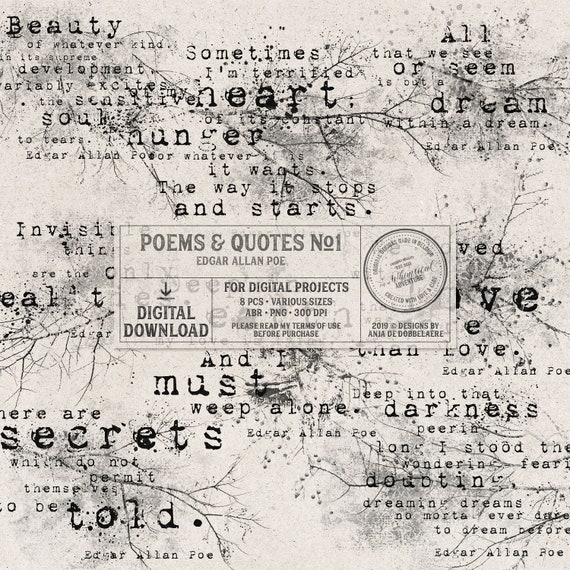 Beauty
of whatever kind,
in its supreme
development
variably excites
the sensitive
soul
to tears.
Edgar Allan Poe
Sometimes
I'm terrified
of my
heart;
of its constant
hunger
for whatever it is
it wants.
The way it stops
and starts.
All
that we see
or seem
is but a
dream
within a dream.
Edgar Allan Poe
Invisible
things
are the
only
Edgar Allan
POEMS & QUOTES №1
EDGAR ALLAN POE
DIGITAL
DOWNLOAD
FOR DIGITAL PROJECTS
8 PCS • VARIOUS SIZES
ABR • PNG • 300 DPI
PLEASE READ MY TERMS OF USE
BEFORE PURCHASE
Whimsical
ADVENTURE
CREATED WITH LOVE & CARE
2019 © DESIGNS BY
ANJA DE DOBBELAERE
than love.
Edgar Allan Poe
And I
must
weep alone.
Edgar Allan Poe
There are
secrets
which do not
permit
themselves
to be
told.
Edgar Allan Poe
Deep into that
darkness
peerin
long I stood the
wondering, feari
doubting,
dreaming dreams
no mortal ever dare
to dream before
Edgar Allan Poe